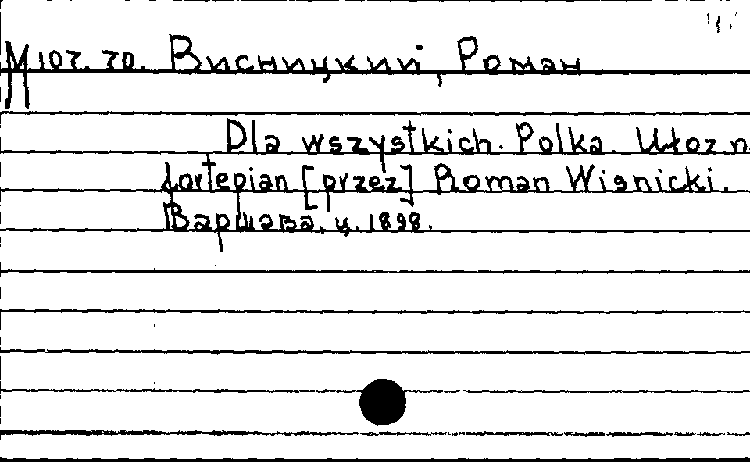 М 107. 70. Висницкий, Роман
Dla wszystkich. Polka. Ułoz n
fortepian [przez] Roman Wisnicki.
Варшава, ц. 1898.